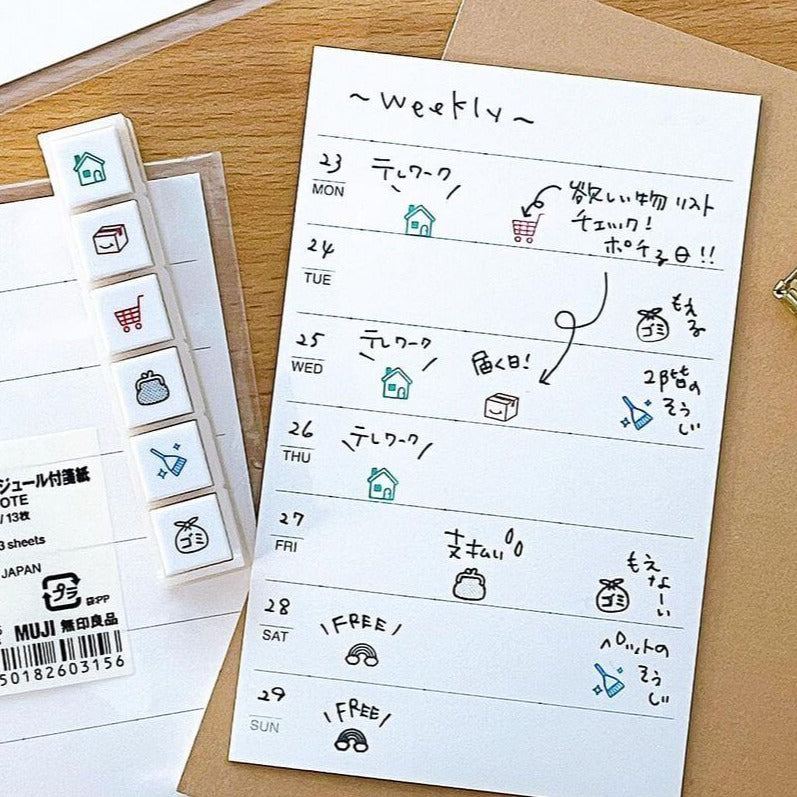 ~weekly~
23
MON
テレワーク
欲しい物リスト
チェック!
ポチる日!!
24
TUE
もえ
る
ゴミ
25
WED
テレワーク
届く日!
2階の
そう
じ
26
THU
テレワーク
27
FRI
支払い
もえ
なーい
ゴミ
28
SAT
FREE
ペットの
そう
じ
29
SUN
FREE
ゴミ
ジュール付箋紙
OTE
/13枚
3 sheets
JAPAN
プラ
袋:PP
MUJI 無印良品
50182603156